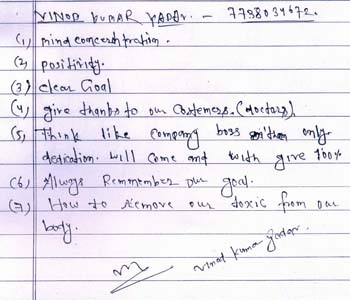 VINOD KUMAR YADAV. - 7798034672.
(1) mind concerstpration.
(2) positivity.
(3) clear Goal
(4) give thanks to our Costemers. (doctors)
(5) Think like company boss only
detication will come and with give 100%
(6) Always Remmember our goal.
(7) How to Remove our toxic from our
body.
vinod kumar yadav.